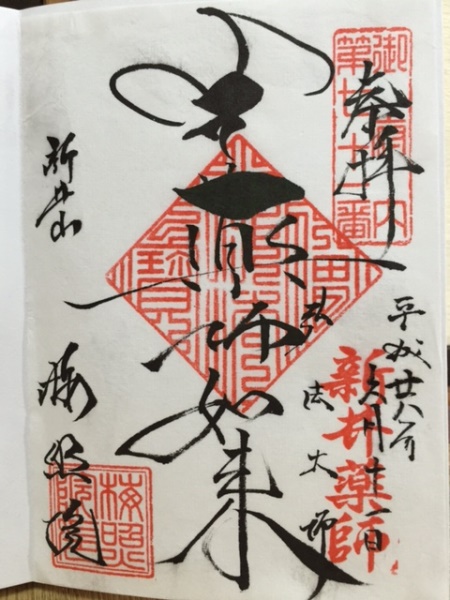 御府内
第七十一番
奉拝
平成廿八年
新井薬師
弘法大師
薬師如来
新井山
梅照院
梅照
院